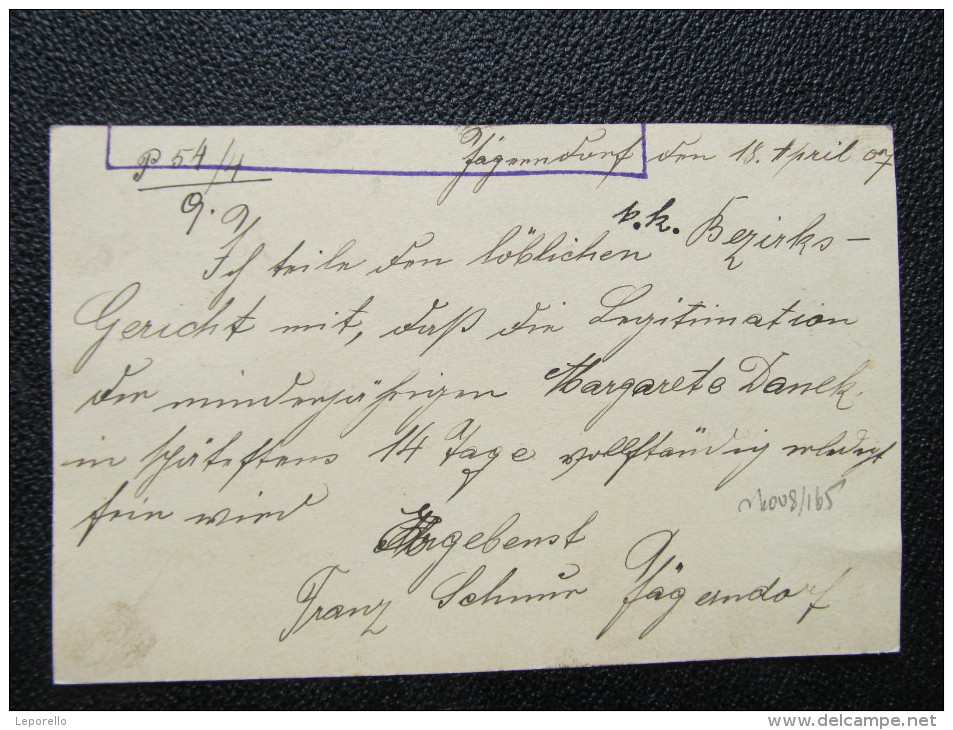 P 54/4
9.
Jägerndorf den 18. April 07
Ich teile den löblichen k.k. Bezirks-
Gericht mit, daß die Legitimation
der minderjährigen Margarete Danek
in spätestens 14 Tage vollständig erledigt
sein wird
Ergebenst
Franz Schnur Jägerndorf
Leporello
http://www.delcampe.net